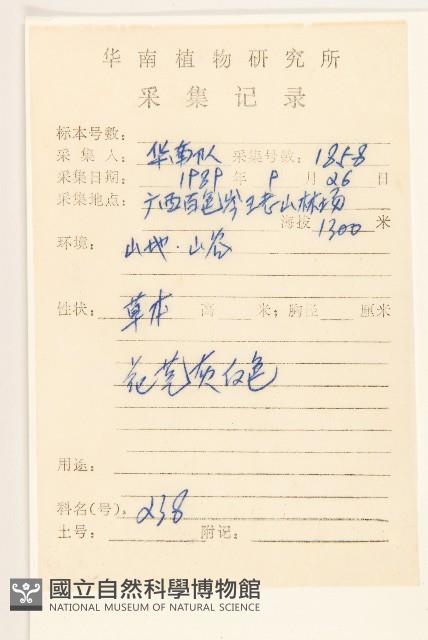 华南植物研究所
采集记录
标本号数:
采集人: 华南队 采集号数: 1858
采集日期: 1989 年 9 月 26 日
采集地点: 广西百色岑王老山林场
海拔 1300 米
环境: 山地·山谷
性状: 草本 高 米; 胸径 厘米
花 灰白色
用途:
科名(号): 238
土号: 附记:
國立自然科學博物館
NATIONAL MUSEUM OF NATURAL SCIENCE